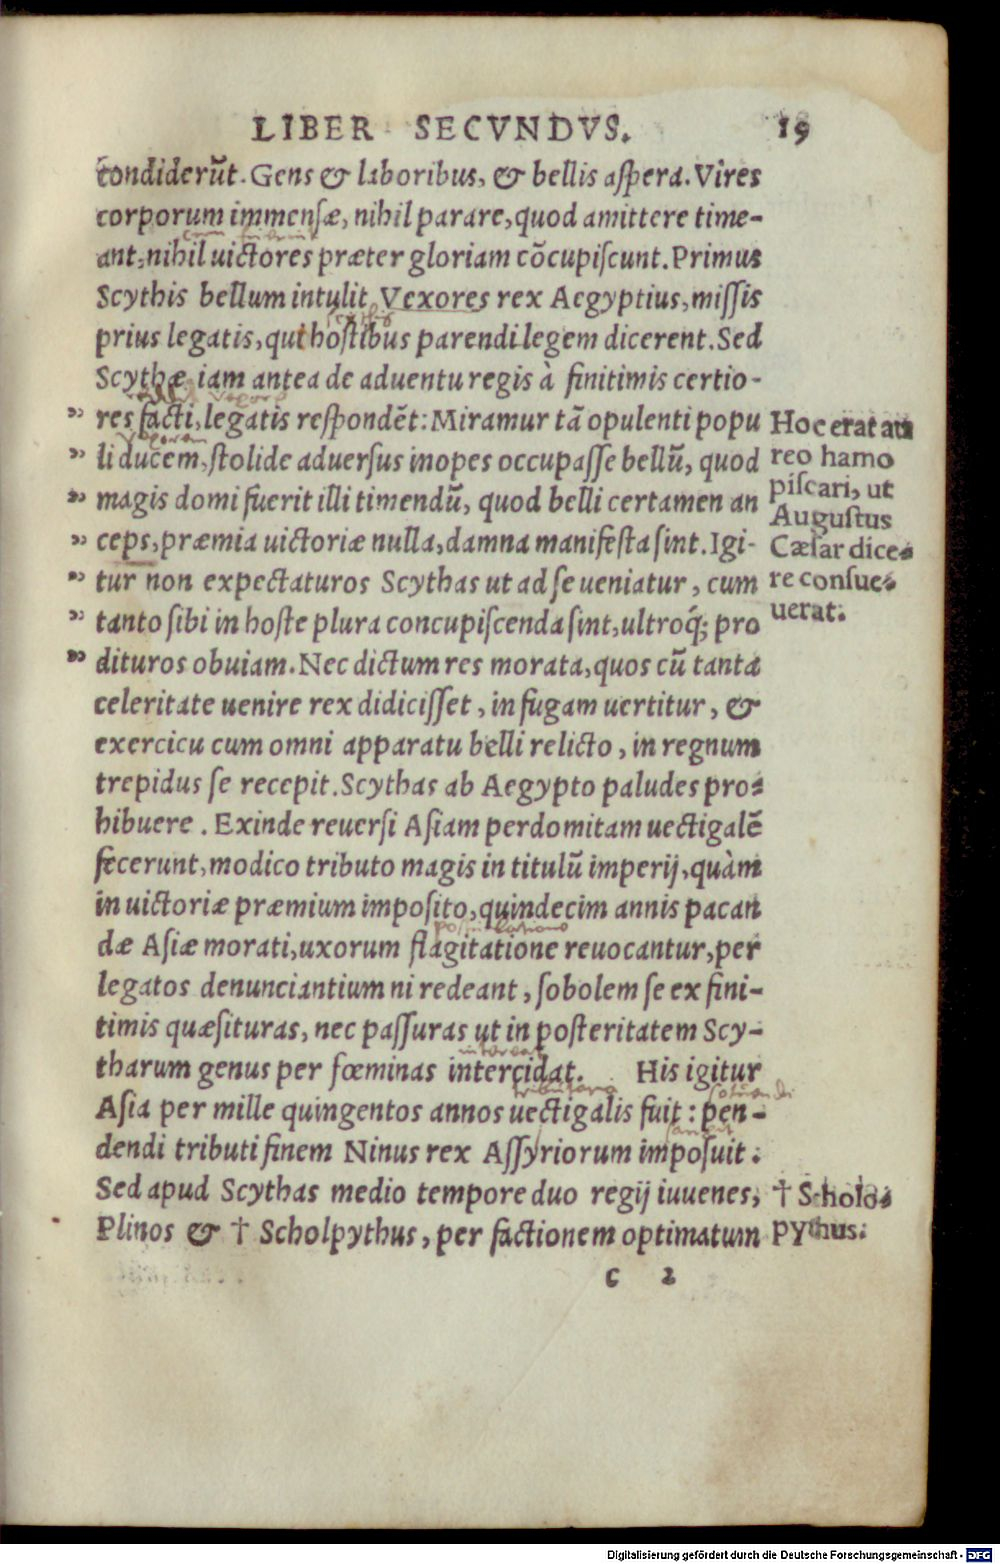 LIBER SECVNDVS. 19
condiderũt. Gens & laboribus, & bellis aſpera. Vires
corporum immenſæ, nihil parare, quod amittere time-
ant, nihil uictores præter gloriam cõcupiſcunt. Primus
Scythis bellum intulit Vexores rex Aegyptius, miſſis
prius legatis, qui hoſtibus parendi legem dicerent. Sed
Scythæ iam antea de aduentu regis à finitimis certio-
„ res facti, legatis reſpondẽt: Miramur tã opulenti popu
„ li ducem, ſtolide aduerſus inopes occupaſſe bellũ, quod
„ magis domi fuerit illi timendũ, quod belli certamen an
„ ceps, præmia uictoriæ nulla, damna manifeſta ſint. Igi-
„ tur non expectaturos Scythas ut ad ſe ueniatur, cum
„ tanto ſibi in hoſte plura concupiſcenda ſint, ultroq́; pro
„ dituros obuiam. Nec dictum res morata, quos cũ tanta
celeritate uenire rex didiciſſet, in fugam uertitur, &
exercicu cum omni apparatu belli relicto, in regnum
trepidus ſe recepit. Scythas ab Aegypto paludes pro-
hibuere. Exinde reuerſi Aſiam perdomitam uectigalẽ
fecerunt, modico tributo magis in titulũ imperij, quàm
in uictoriæ præmium impoſito, quindecim annis pacan
dæ Aſiæ morati, uxorum flagitatione reuocantur, per
legatos denunciantium ni redeant, ſobolem ſe ex fini-
timis quæſituras, nec paſſuras ut in poſteritatem Scy-
tharum genus per fœminas intercidat. His igitur
Aſia per mille quingentos annos uectigalis fuit: pen-
dendi tributi finem Ninus rex Aſſyriorum impoſuit.
Sed apud Scythas medio tempore duo regij iuuenes,
Plinos & † Scholpythus, per factionem optimatum
c 2
Hoc erat au
reo hamo
piſcari, ut
Auguſtus
Cæſar dice-
re conſue-
uerat.
† Scholo-
pythus.
postulatione
tributaria
Digitalisierung gefördert durch die Deutsche Forschungsgemeinschaft - DFG